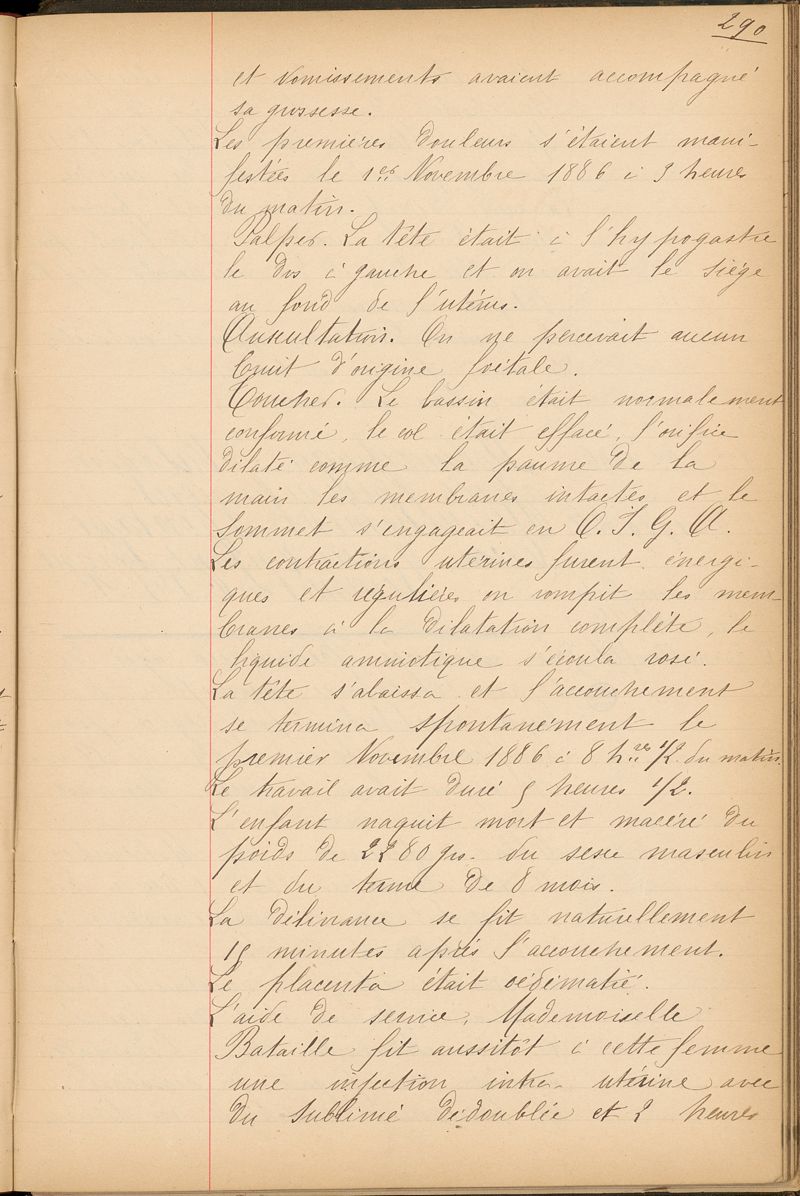 290
et vomissements avaient accompagné
sa grossesse.
Les premières douleurs s'étaient mani-
festées le 1er Novembre 1886 à 3 heures
du matin.
Palper. La tête était à l'hypogastre
le dos à gauche et on avait le siège
au fond de l'utérus.
Auscultation. On ne percevait aucun
bruit d'origine foetale.
Toucher. Le bassin était normalement
conformé, le col était effacé, l'orifice
dilaté comme la paume de la
main les membranes intactes et le
sommet s'engageait en O. I. G. A.
Les contractions utérines furent énergi-
ques et régulières on rompit les mem-
branes à la dilatation complète, le
liquide amniotique s'écoula rosé.
La tête s'abaissa et l'accouchement
se termina spontanément le
premier Novembre 1886 à 8 hres 1/2 du matin.
Le travail avait duré 5 heures 1/2.
L'enfant naquit mort et macéré du
poids de 2280 grs. du sexe masculin
et du terme de 8 mois.
La délivrance se fit naturellement
15 minutes après l'accouchement.
Le placenta était oedématié.
L'aide de service, Mademoiselle
Bataille fit aussitôt à cette femme
une injection intra-utérine avec
du sublimé dédoublée et 2 heures